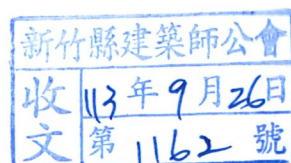 新竹縣建築師公會
收文
113年9月26日
第1162號